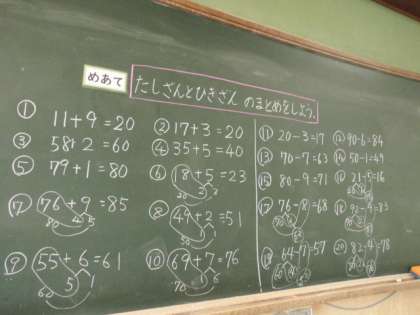 めあて たしざんとひきざん のまとめをしよう。
① 11+9=20
② 17+3=20
③ 58+2=60
④ 35+5=40
⑤ 79+1=80
⑥ 18+5=23
⑦ 76+9=85
⑧ 49+2=51
⑨ 55+6=61
⑩ 69+7=76
⑪ 20-3=17
⑫ 90-6=84
⑬ 70-7=63
⑭ 50-1=49
⑮ 80-9=71
⑯ 21-5=16
⑰ 76-8=68
⑱ 92-9=83
⑲ 64-7=57
⑳ 82-4=78